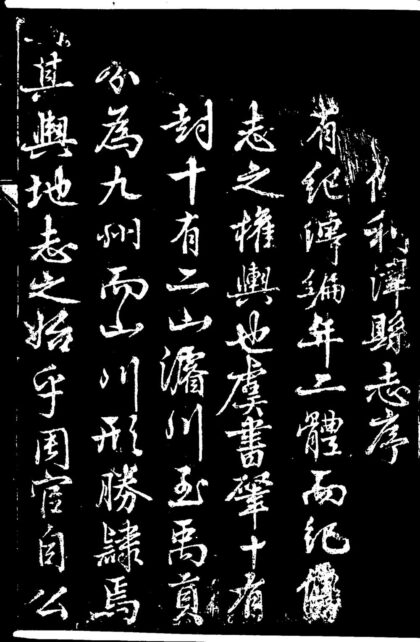 利津縣志序
有紀傳編年二體而紀
志之權輿也虞書肇十有
封十有二山濬川至禹貢
分為九州而山川形勝隸焉
其輿地志之始乎周官自公